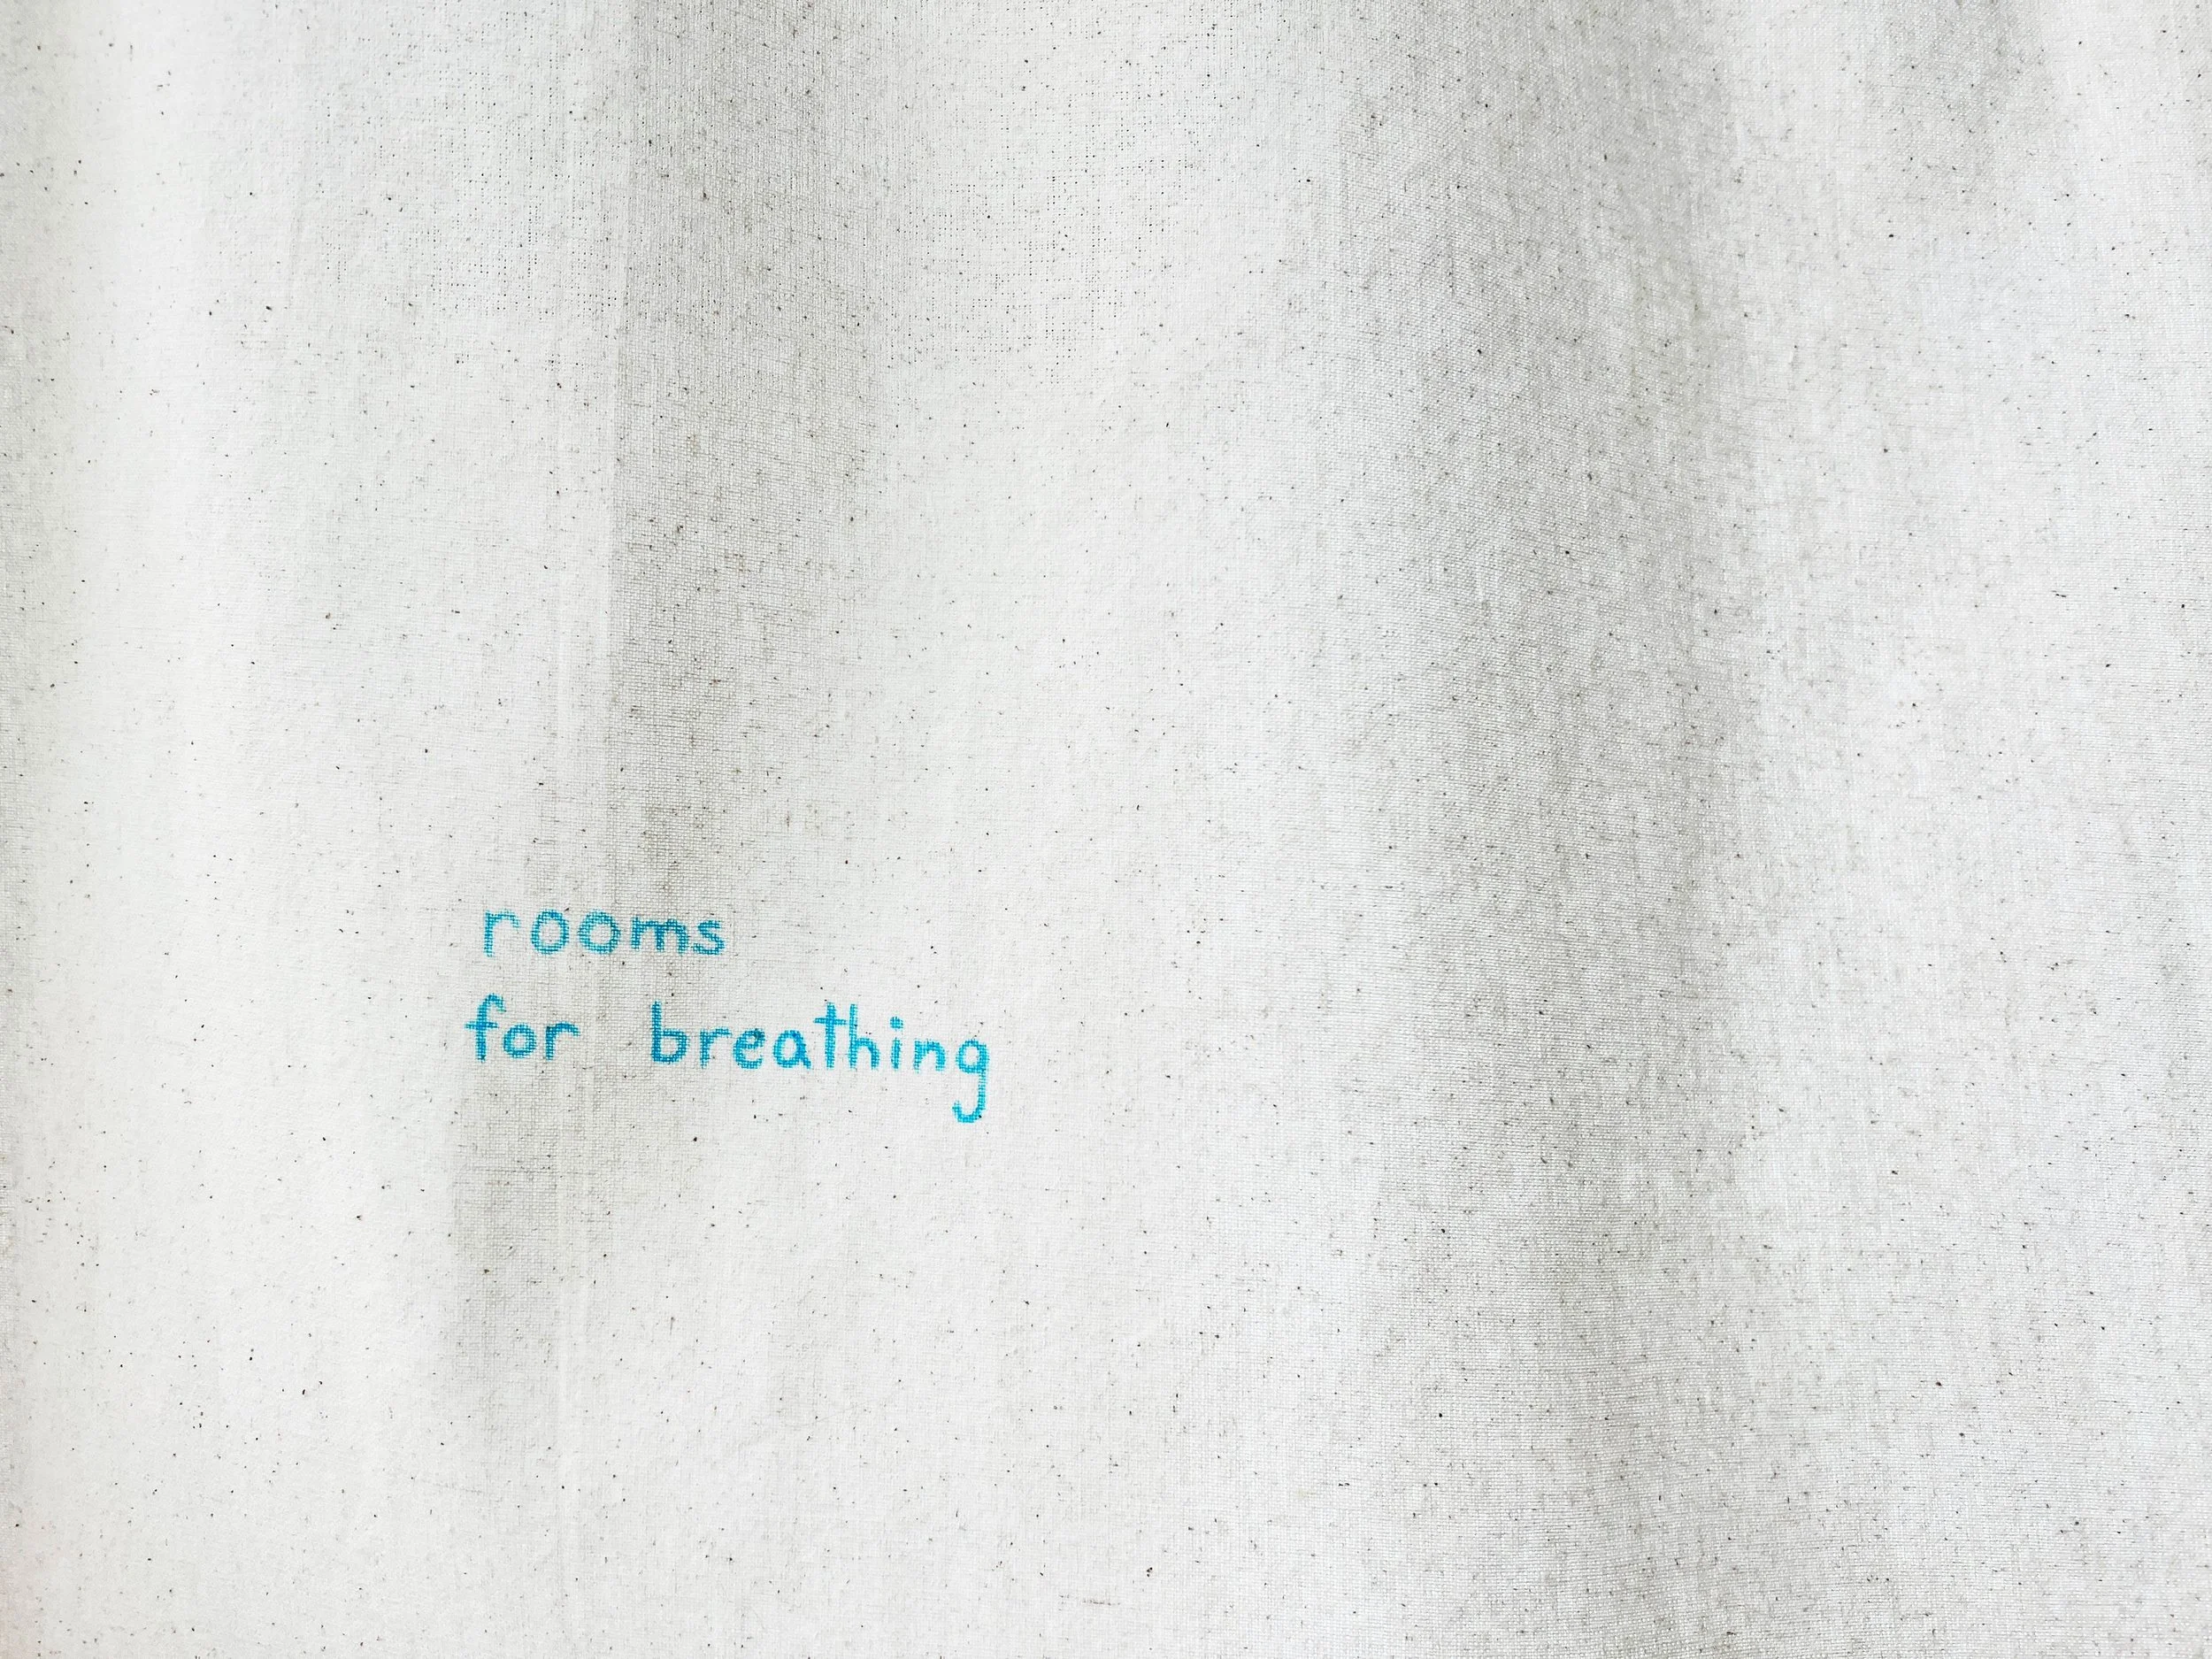 rooms
for breathing